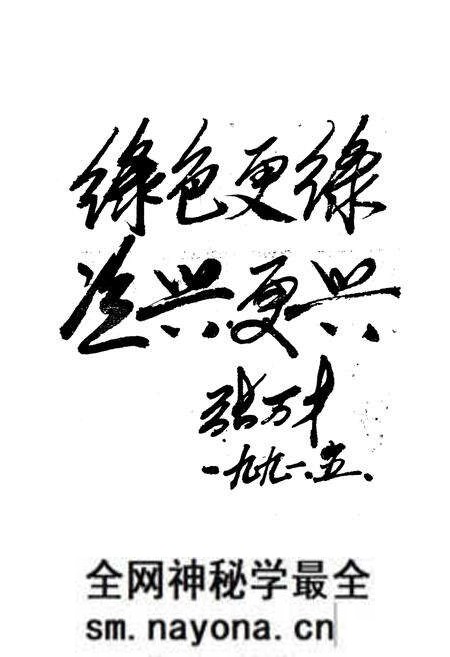 绿色更绿
兴更兴
张万才
一九九一.五.
全网神秘学最全
sm.nayona.cn